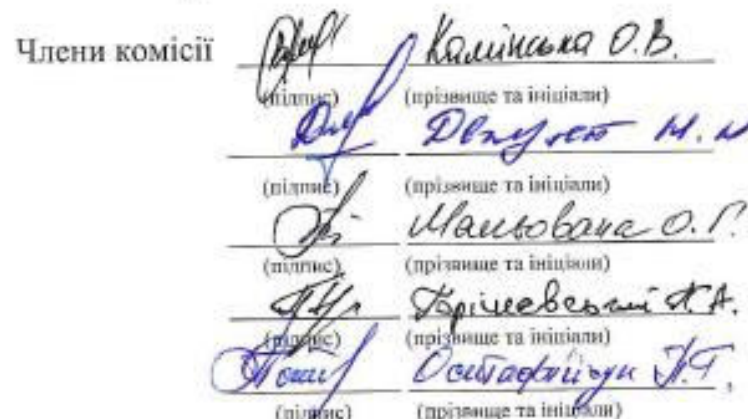 Члени комісії Камінська О.В.
(підпис) (прізвище та ініціали)
(підпис) (прізвище та ініціали)
Мальована О.Г.
(підпис) (прізвище та ініціали)
(підпис) (прізвище та ініціали)
Остафійчук П.Г.
(підпис) (прізвище та ініціали)